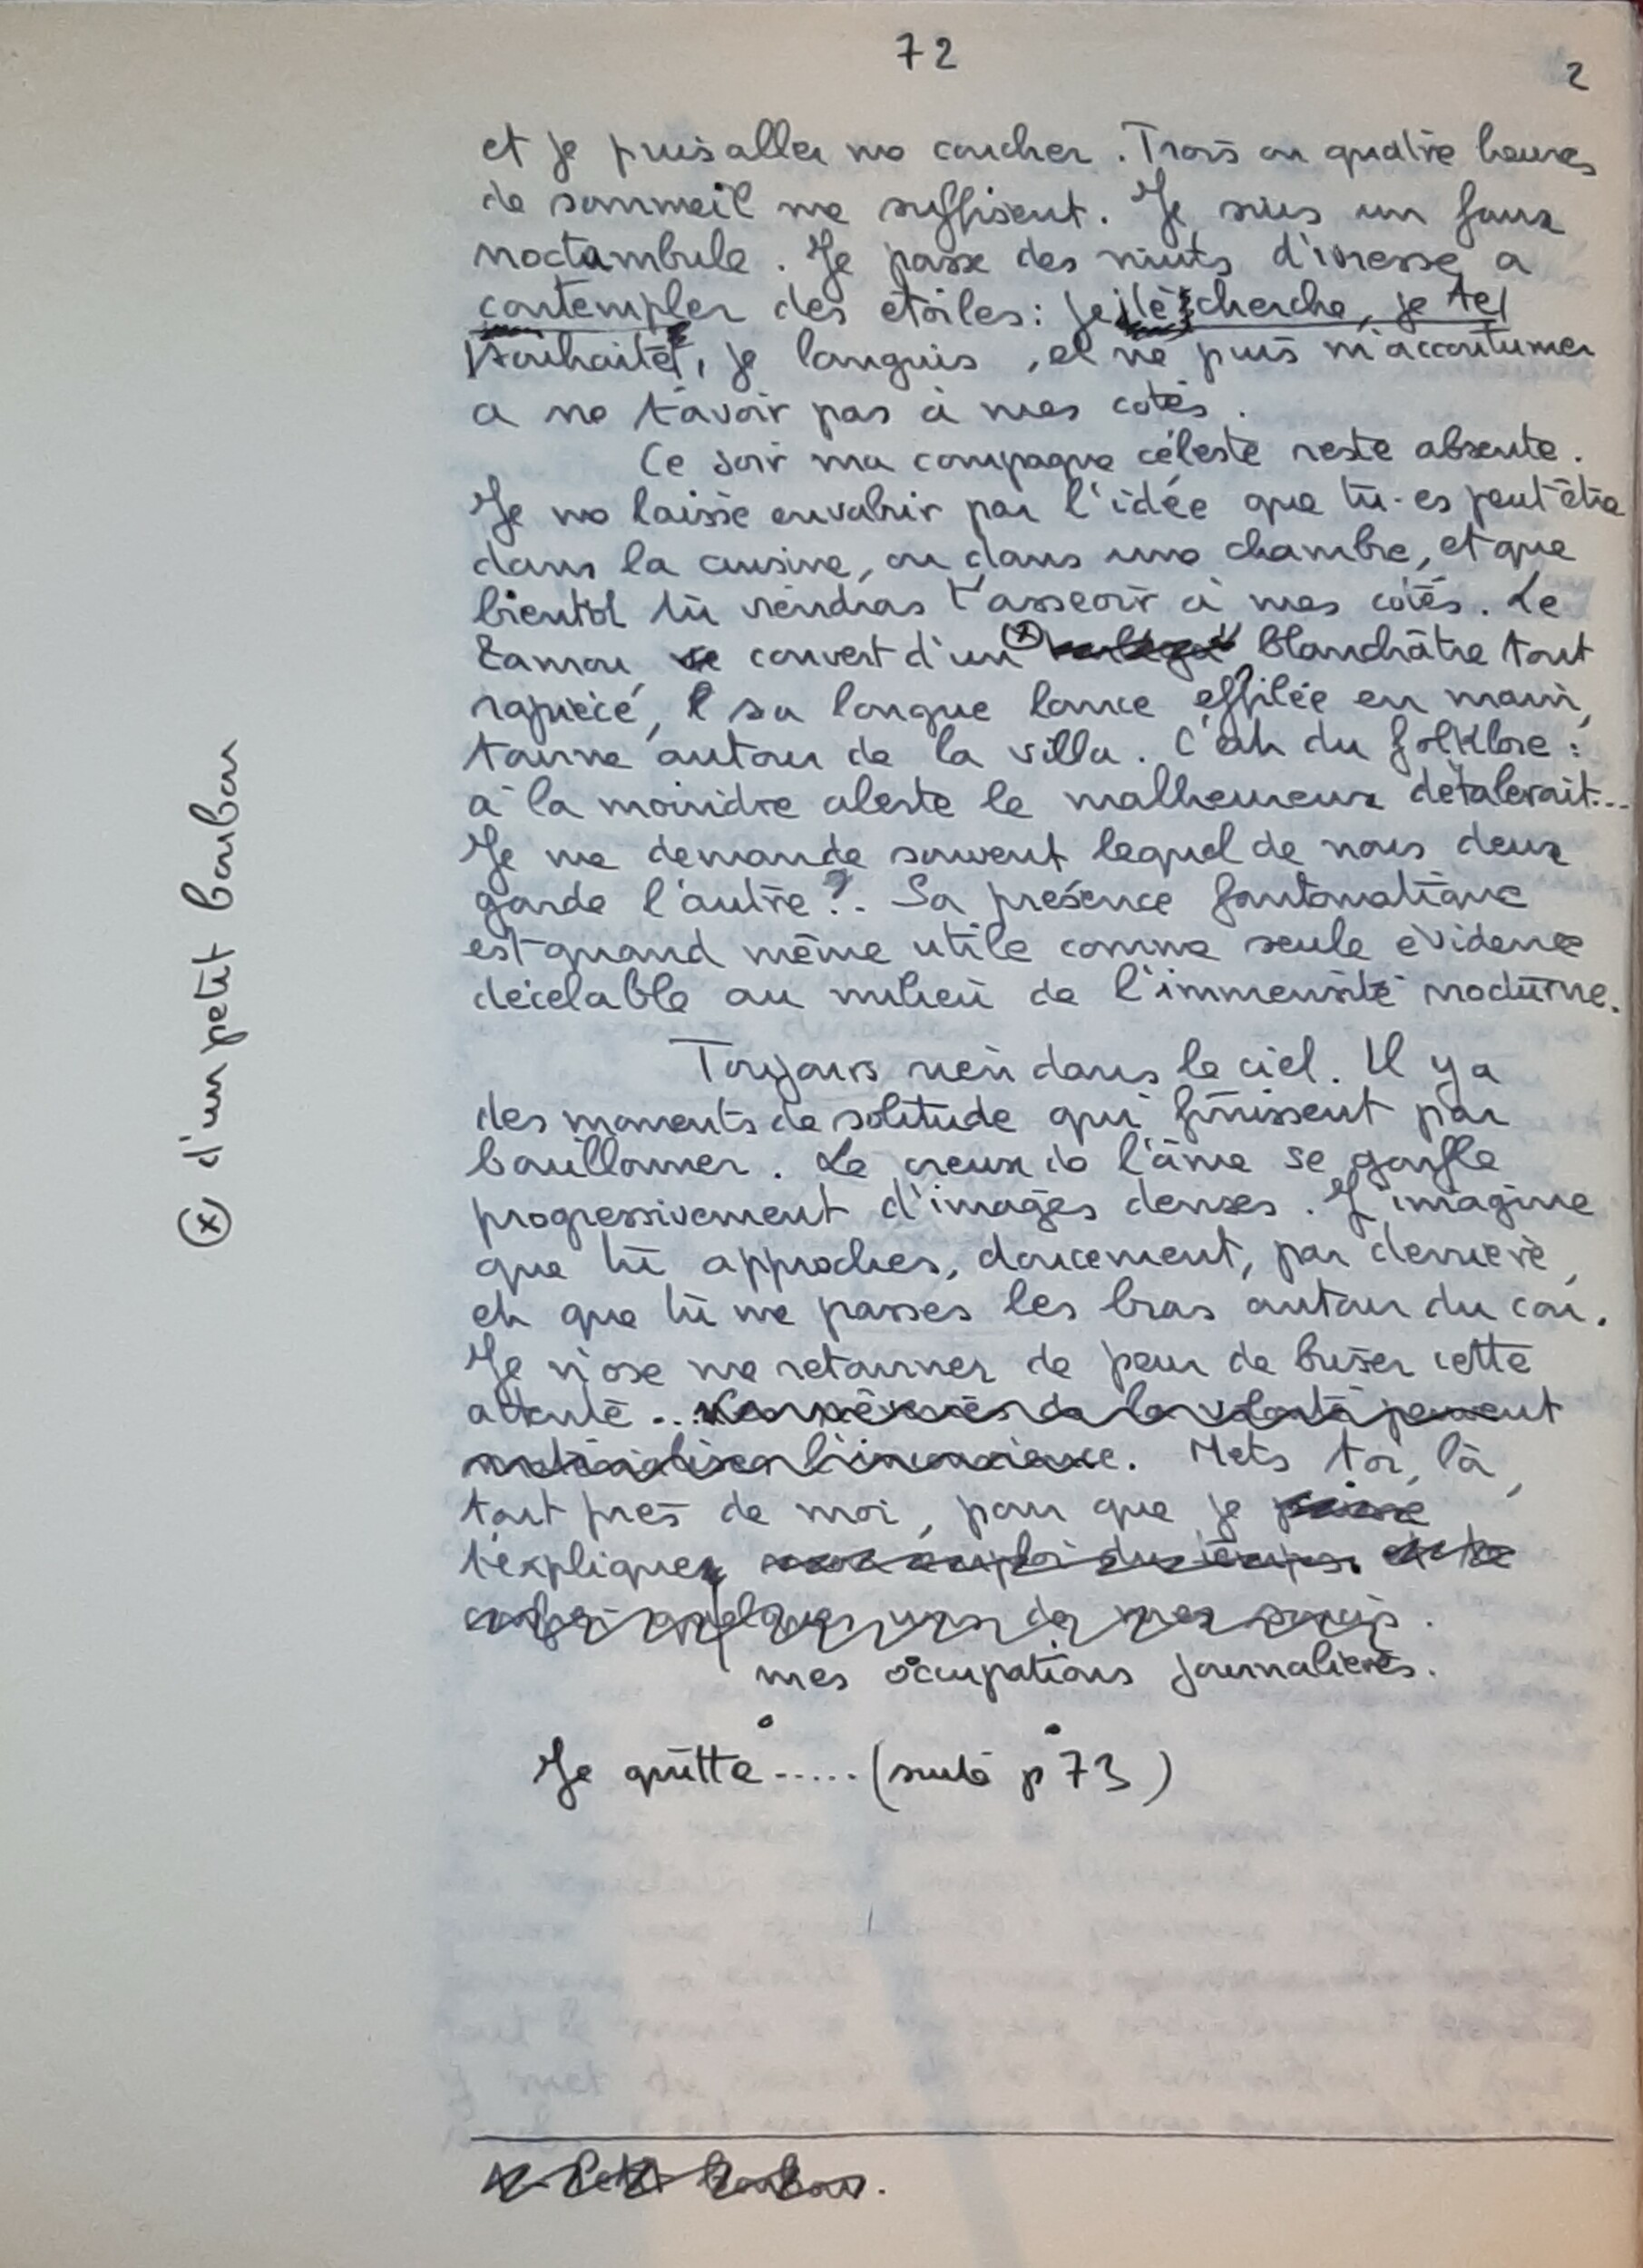 72
2
et je puis aller me coucher. Trois ou quatre heures
de sommeil me suffisent. Je suis un faux
noctambule. Je passe des nuits d'ivresse à
contempler des étoiles : je te cherche, je te
souhaite, je languis, et ne puis m'accoutumer
à ne t'avoir pas à mes côtés.
Ce soir ma compagne céleste reste absente.
Je me laisse envahir par l'idée que tu es peut être
dans la cuisine, ou dans une chambre, et que
bientôt tu viendras t'asseoir à mes côtés. Le
Zamou, couvert d'un (x) blanchâtre tout
rapiécé, sa longue lance effilée en main,
tourne autour de la villa. C'est du folklore :
à la moindre alerte le malheureux détalerait...
Je me demande souvent lequel de nous deux
garde l'autre ?.. Sa présence fantomatique
est quand même utile comme seule évidence
décelable au milieu de l'immensité nocturne.
Toujours rien dans le ciel. Il y a
des moments de solitude qui finissent par
baillonner. Le creux de l'âme se gonfle
progressivement d'images denses. J'imagine
que tu approches, doucement, par derrière,
et que tu me passes les bras autour du cou.
Je n'ose me retourner de peur de briser cette
attente... Les nécessités de la volonté peuvent
matérialiser l'inconscience. Mets toi, là,
tout près de moi, pour que je puisse
t'expliquer mon emploi du temps. et te
confier quelques uns de mes soucis.
mes occupations journalières.
Je quitte ..... (suite p 73)
petit boubou.
(x) d'un petit boubou